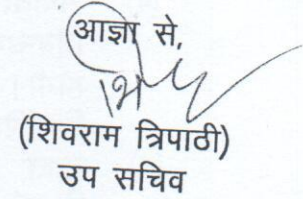 आज्ञा से,
(शिवराम त्रिपाठी)
उप सचिव